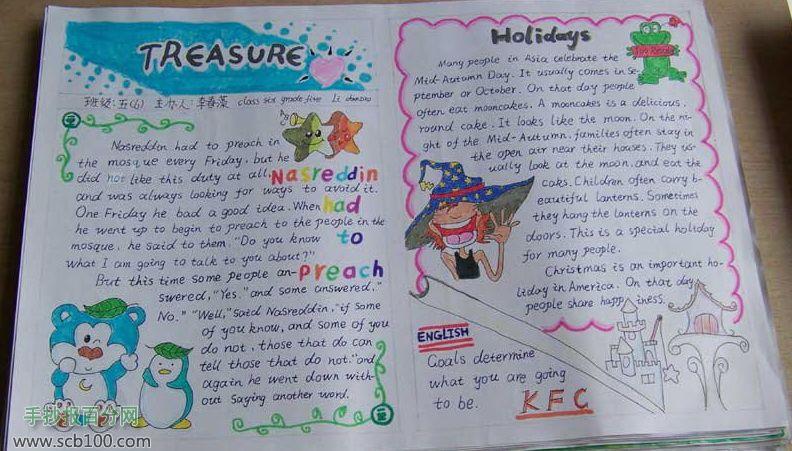 TREASURE
班级:五(6) 主办人:李春蓉 class six grade five Li
Nasreddin had to preach in
the mosque every Friday, but he
did not like this duty at all,
and was always looking for ways to avoid it.
One Friday he bad a good idea. When
he went up to begin to preach to the people in the
mosque, he said to them, "Do you know
what I am going to talk to you about?"
But this time some people an-
swered, "Yes." and some answered,"
No." "Well," said Nasreddin,"if some
of you know, and some of you
do not, those that do can
tell those that do not."and
again he went down with-
out saying another word.
Nasreddin
had
to
preach
Holidays
100 Reads
Many people in Asia celebrate the
Mid-Autumn Day. It usually comes in Se-
ptember or October. On that day people
often eat mooncakes. A mooncakes is a delicious,
round cake. It looks like the moon. On the ni-
ght of the Mid-Autumn, families often stay in
the open air near their houses. They us-
ually look at the moon, and eat the
caks. Children often carry b-
eautiful lanterns. Sometimes
they hang the lanterns on the
doors. This is a special holiday
for many people.
Christmas is an important ho-
liday in America. On that day
people share happiness.
ENGLISH
Goals determine
what you are going
to be.
KFC
手抄报百分网
www.scb100.com